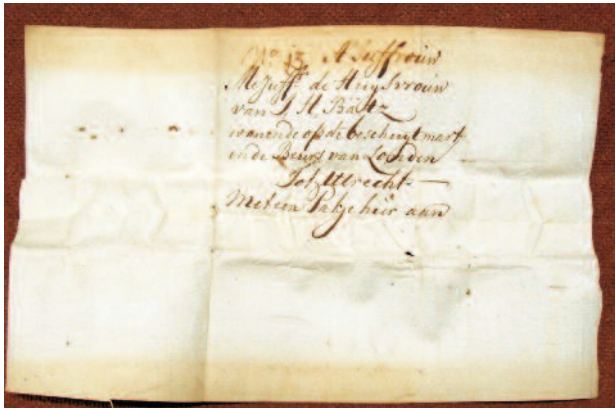 No 13 A Juffrouw
Mejuff de Huysvrouw
van J H Bätz
wonende op de beschuytmart
in de Beurs van Londen
Tot Uttrecht
Met een Pakje hier aan